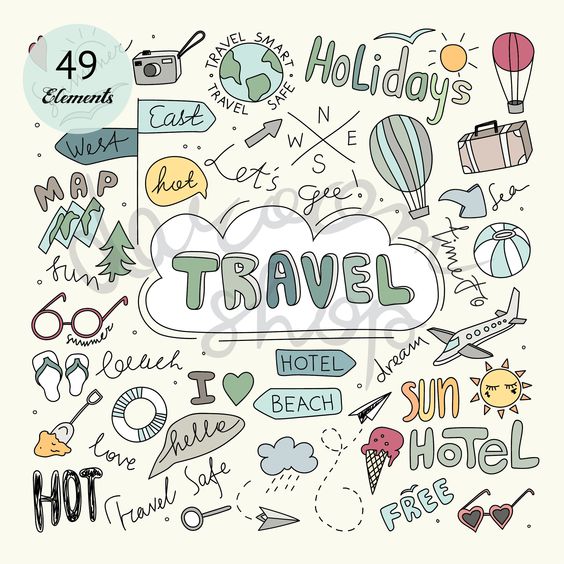 49
Elements
Summer
TRAVEL SMART
TRAVEL SAFE
HOLiDays
East
West
hot
Let's
N
W E
S
MAP
Sea
time to
sun
TRAVEL
shop
summer
beach
HOTEL
dream
I
BEACH
SUN
hello
love
HOTEL
HOT
Travel Safe
FREE